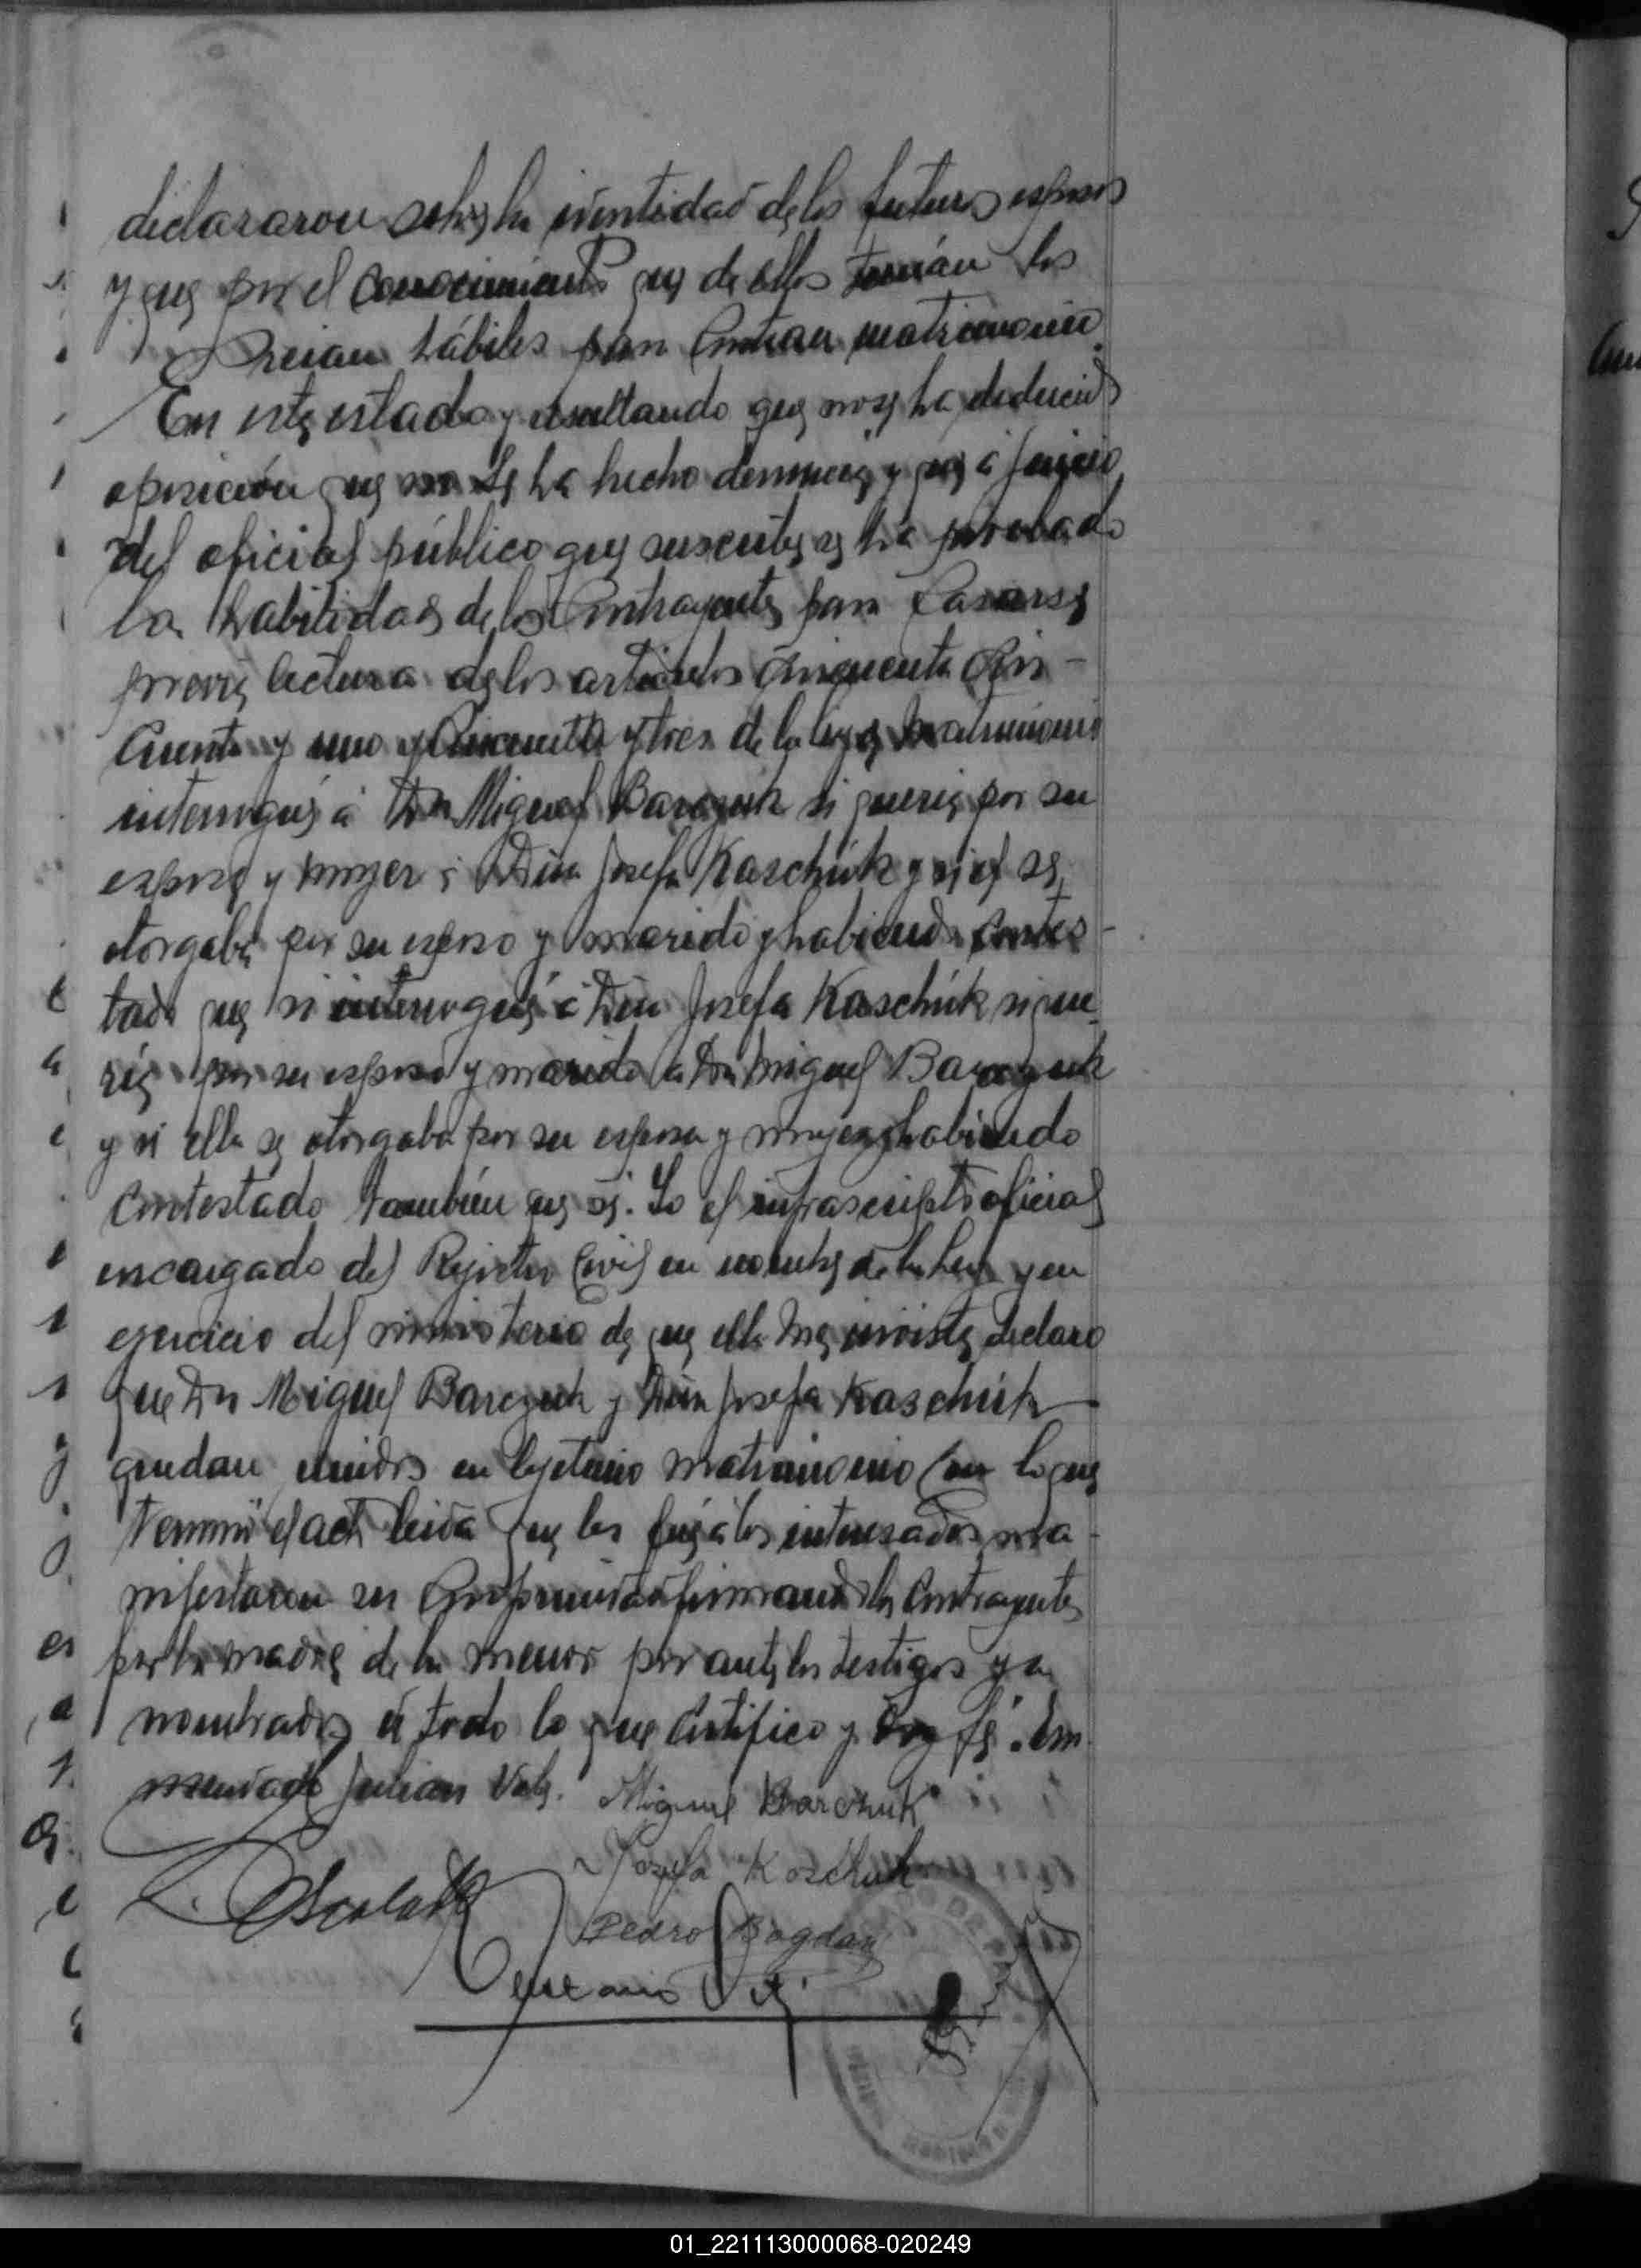 declararon sobre la identidad de los futuros esposos
y que por el conocimiento que de ellos tenían los
creian hábiles para contraer matrimonio.
En este estado y resultando que no se ha deducido
oposición que no se ha hecho denuncia y que á juicio
del oficial público que suscribe se ha probado
la habilidad de los contrayentes para casarse
previa lectura de los articulos cincuenta cin-
cuenta y uno y cincuenta y tres de la ley de matrimonio
interrogué á Dn Miguel Barczuk si queria por su
esposa y mujer á Dña Josefa Kaschúk y si él se
otorgaba por su esposo y marido y habiendo contes-
tado que si interrogué á Dña Josefa Kaschúk si que-
ria por su esposo y marido a Dn Miguel Barczuk
y si ella se otorgaba por su esposa y mujer y habiendo
contestado también que si. Yo el infrascripto oficial
encargado del Rejistro Civil en nombre de la Ley y en
ejercicio del ministerio de que ella me inviste declaro
que Dn Miguel Barczuk y Dña Josefa Kaschúk
quedan unidos en lejitimo matrimonio con lo que
terminó el acta leida que les fué á los interesados ma-
nifestaron su conformidad firmando los contrayentes
por la madre de la menor por ante los testigos ya
nombrados de todo lo que certifico y doy fé. Em
mendado Julian Vale.
Miguel Barchuk
Jozefa Koschuk
Pedro Bogdan
01_221113000068-020249